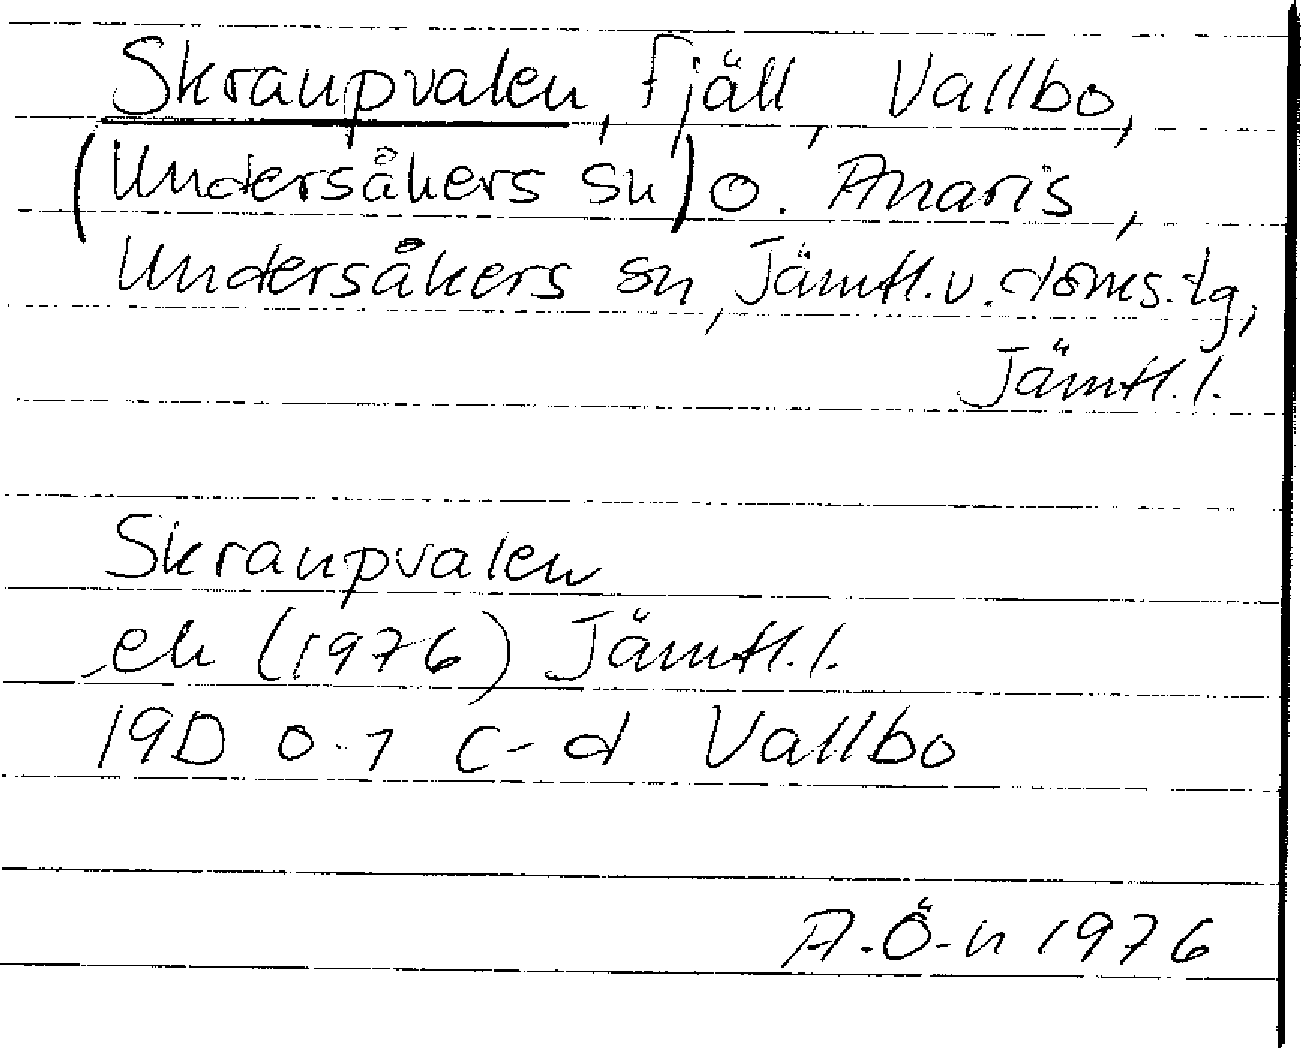 Skraupvalen, fjäll, Vallbo,
(Undersåkers sn) o. Anaris,
Undersåkers sn, Jämtl.v.doms.tg,
Jämtl.l.
Skraupvalen
ek (1976) Jämtl.l.
19D 0-1 c-d Vallbo
A.Ö-n 1976